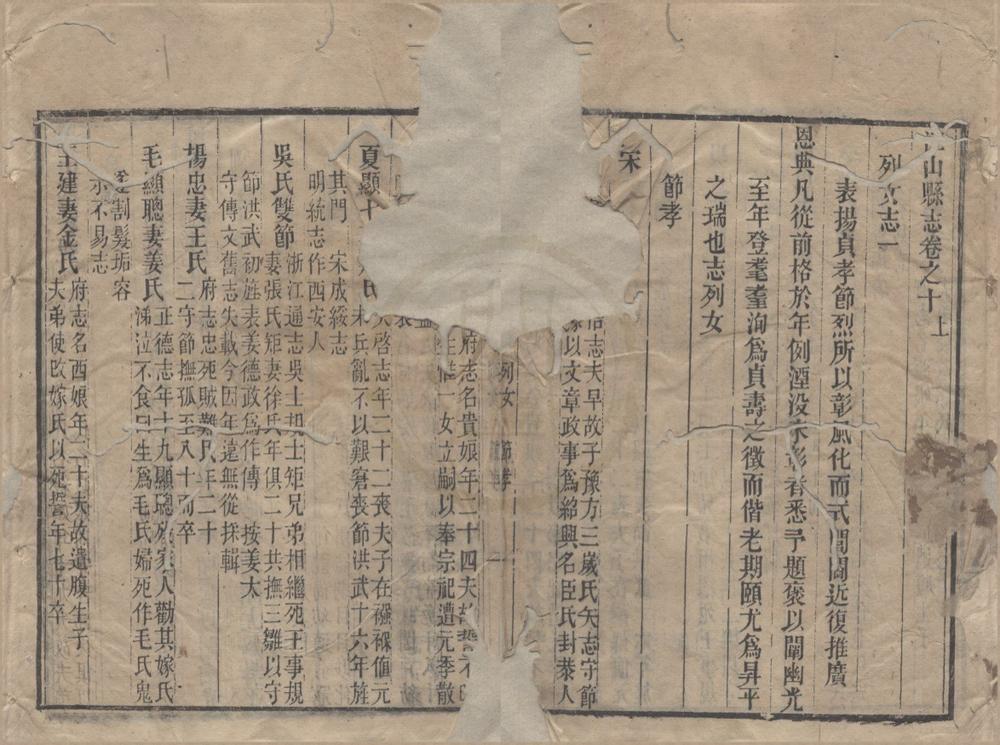 山縣志卷之十上
列女志一
表揚貞孝節烈所以彰風化而式閭閻近復推廣
恩典凡從前格於年例湮没未彰者悉予題褒以闡幽光
至年登耄耋洵爲貞壽之徵而偕老期頤尤爲昇平
之瑞也志列女
節孝
宋
志夫早故子豫方三歲氏矢志守節
以文章政事爲紹興名臣氏封恭人
列女 節孝 一
府志名貴娘年二十四夫故誓不
惟一女立嗣以奉宗祀遭元季散
夏顯
啓志年二十二喪夫子在襁褓值元
末兵亂不以艱窘喪節洪武十六年旌
其門 宋成綏志
明統志作西安人
吳氏雙節
浙江通志吳士規士矩兄弟相繼死王事規
妻張氏矩妻徐氏年俱二十共撫三雛以守
節洪武初旌表姜德政爲作傳 按姜大
守傳文舊志失載今因年遠無從採輯
楊忠妻王氏
府志忠死賊難氏年二十
二守節撫孤至八十而卒
毛顯聰妻姜氏
正德志年十九顯聰故家人勸其嫁氏
涕泣不食曰生爲毛氏婦死作毛氏鬼
割髮垢容
示不易志
王建妻金氏
府志名酉娘年二十夫故遺腹生子
夫弟使改嫁氏以死誓年七十卒